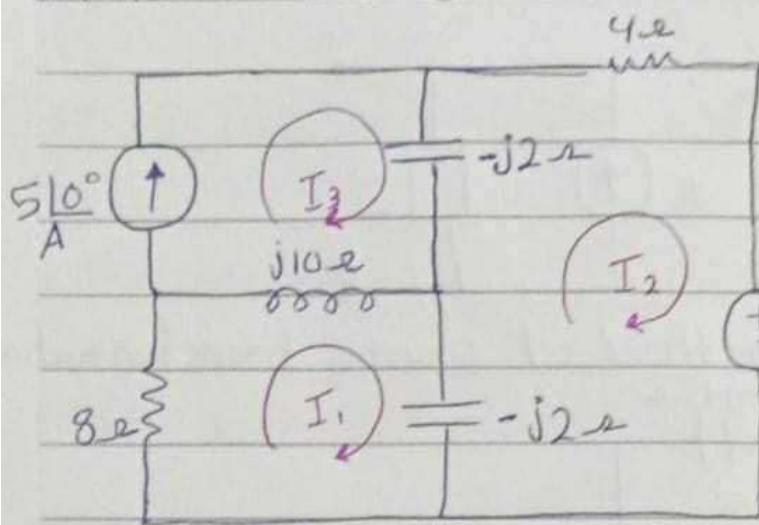 4Ω
5∠0°
A
I₃
-j2Ω
j10Ω
I₂
8Ω
I₁
-j2Ω